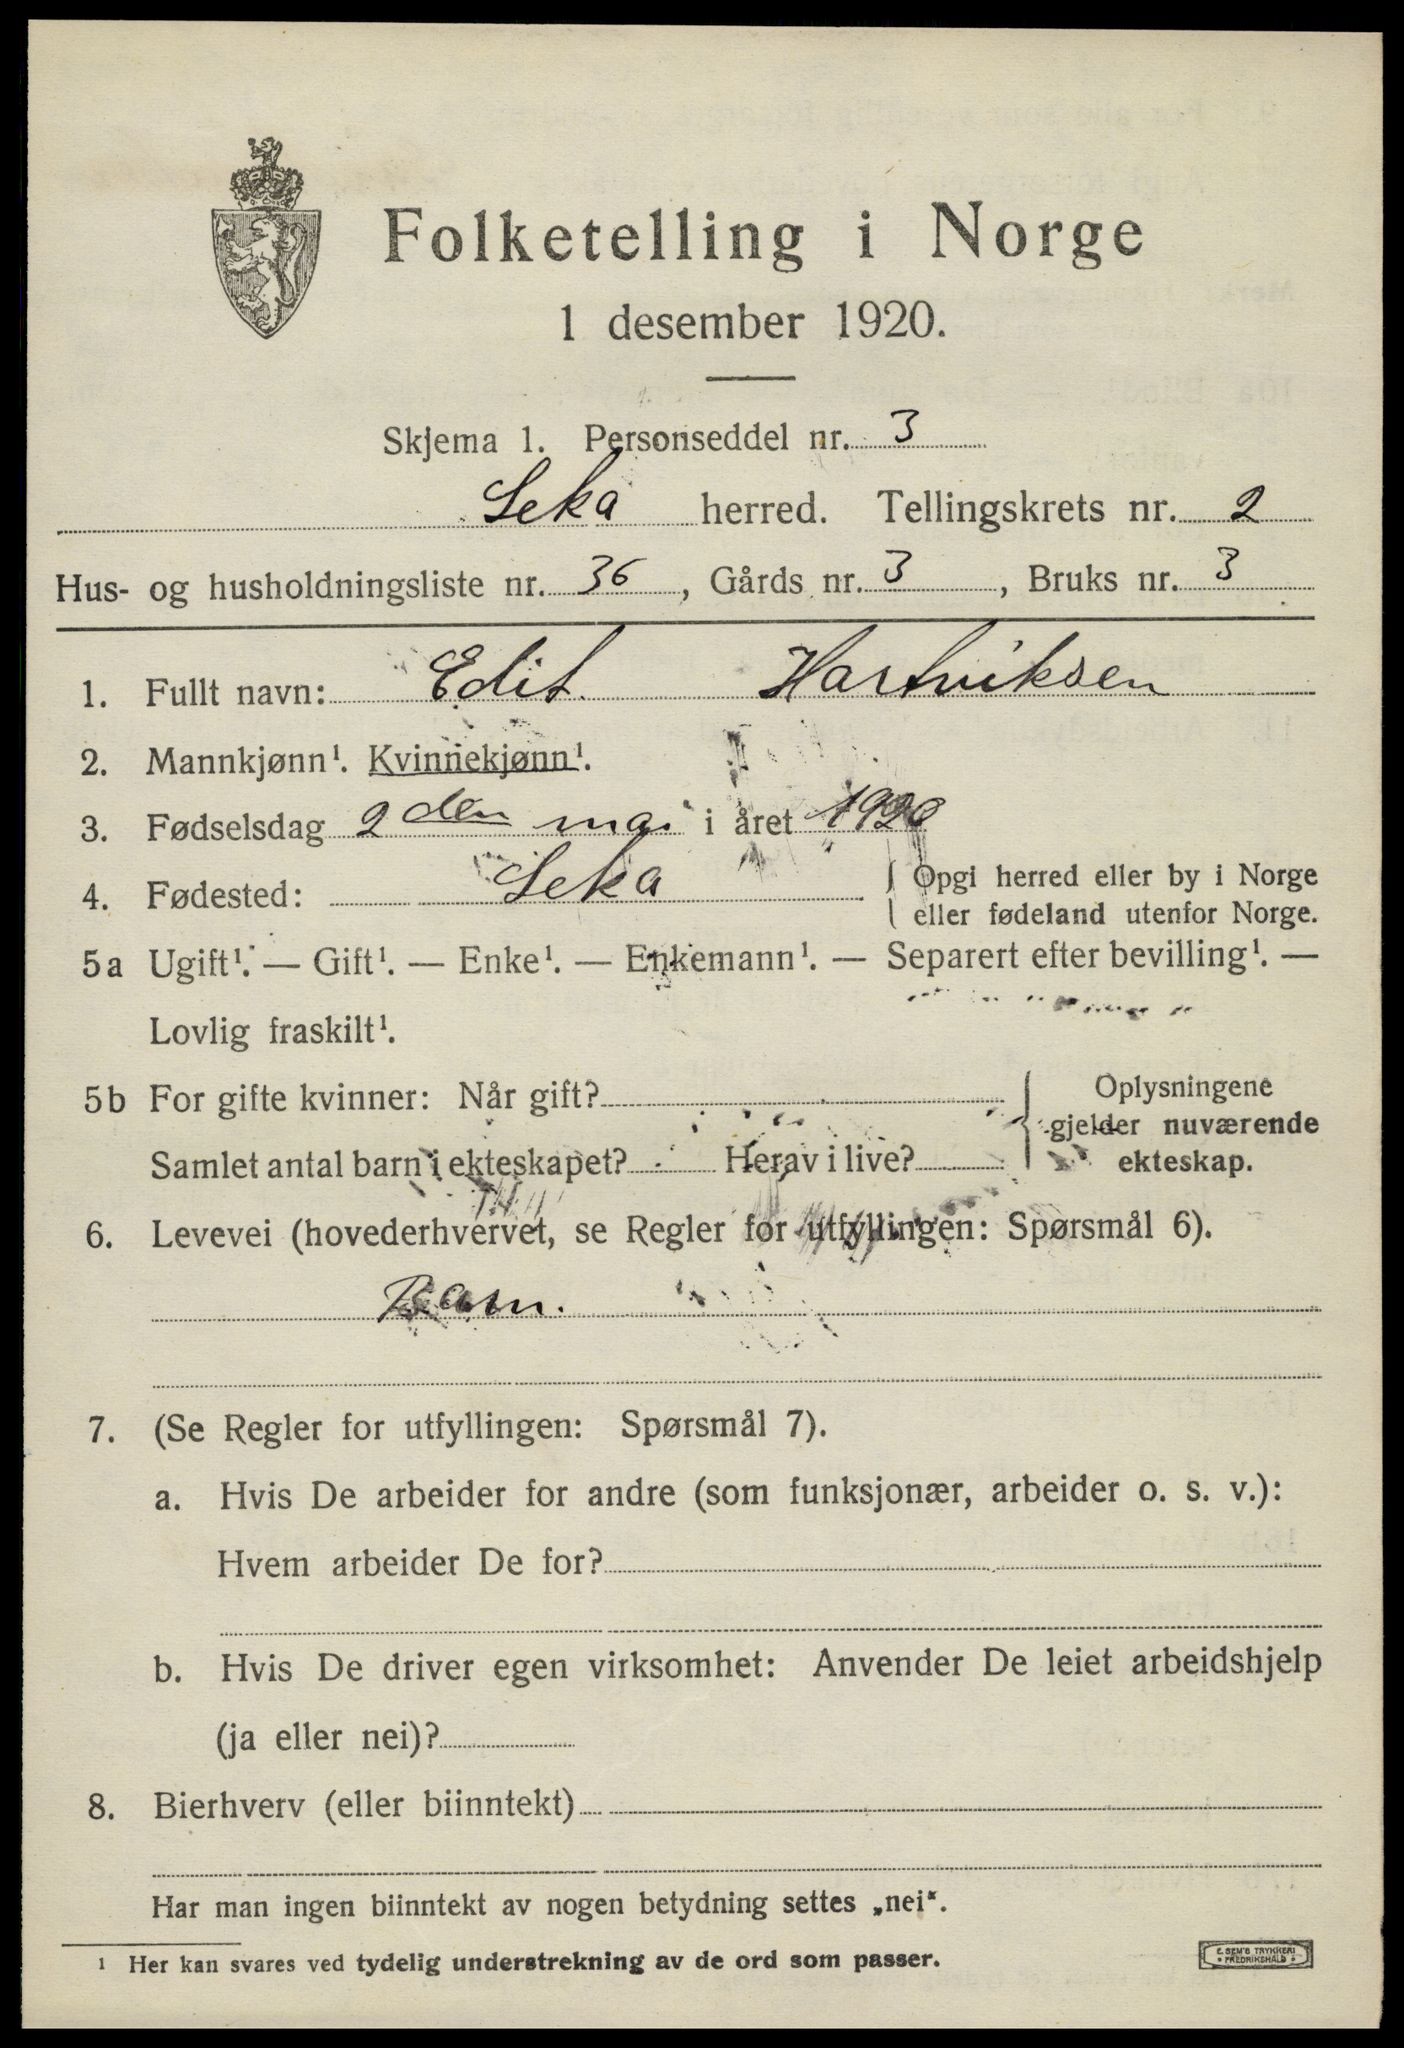 Folketelling i Norge
1 desember 1920.
Skjema 1. Personseddel nr. 3
Leka herred. Tellingskrets nr. 2
Hus- og husholdningsliste nr. 36, Gårds nr. 3, Bruks nr. 3
1. Fullt navn: Edit Hartviksen
2. Mannkjønn¹. Kvinnekjønn¹.
3. Fødselsdag 2den mai i året 1920
4. Fødested: Leka { Opgi herred eller by i Norge
eller fødeland utenfor Norge.
5a Ugift¹. — Gift¹. — Enke¹. — Enkemann¹. — Separert efter bevilling¹. —
Lovlig fraskilt¹.
5b For gifte kvinner: Når gift? { Oplysningene
gjelder nuværende
Samlet antal barn i ekteskapet? Herav i live? ekteskap.
6. Levevei (hovederhvervet, se Regler for utfyllingen: Spørsmål 6).
Barn.
7. (Se Regler for utfyllingen: Spørsmål 7).
a. Hvis De arbeider for andre (som funksjonær, arbeider o. s. v.):
Hvem arbeider De for?
b. Hvis De driver egen virksomhet: Anvender De leiet arbeidshjelp
(ja eller nei)?
8. Bierhverv (eller biinntekt)
Har man ingen biinntekt av nogen betydning settes „nei“.
¹ Her kan svares ved tydelig understrekning av de ord som passer.
E. SEM'S TRYKKERI
FREDRIKSHALD